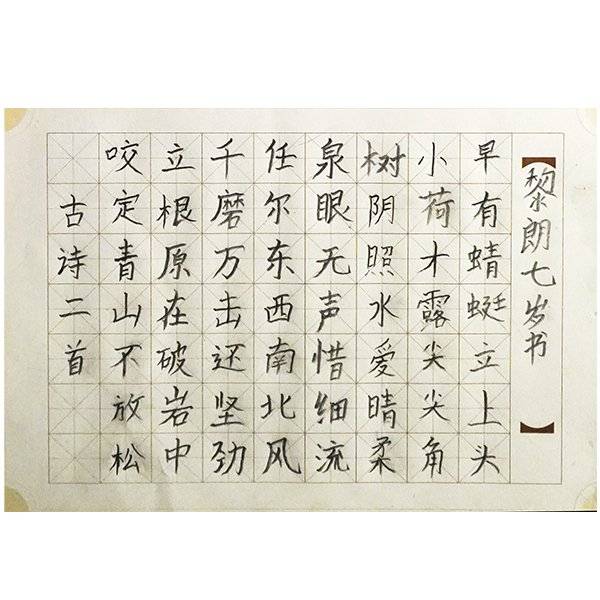 古诗二首
咬定青山不放松
立根原在破岩中
千磨万击还坚劲
任尔东西南北风
泉眼无声惜细流
树阴照水爱晴柔
小荷才露尖尖角
早有蜻蜓立上头
【黎朗七岁书】